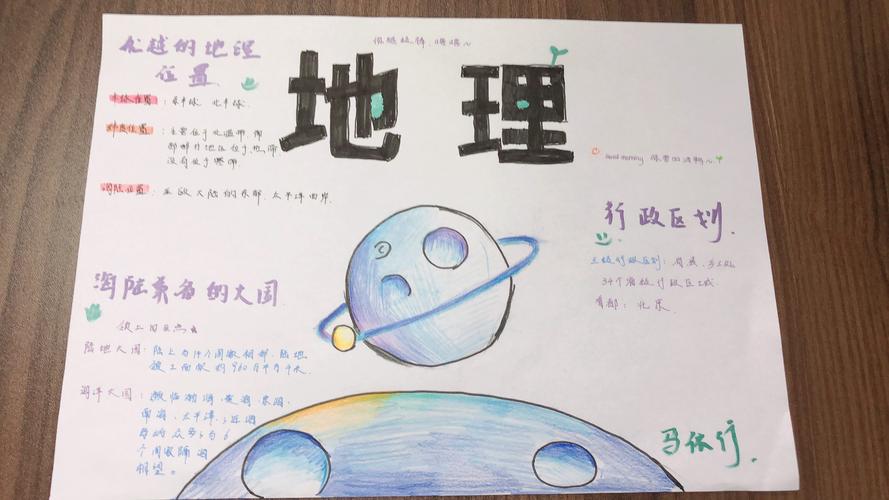 优越的地理
位置
地理
半球位置：东半球 北半球
纬度位置：主要位于北温带，南
部部分地区位于热带
没有位于寒带
海陆位置：亚欧大陆的东部，太平洋西岸
good morning
行政区划
三级行政区划：省、县、乡
34个省级行政区域
首都：北京
海陆兼备的大国
领土
陆地大国：陆上与14个国家相邻，陆地
领土面积约960万平方千米。
海洋大国：濒临渤海、黄海、东海、
南海、太平洋；近海
岛屿众多；与6
个国家隔海
相望。